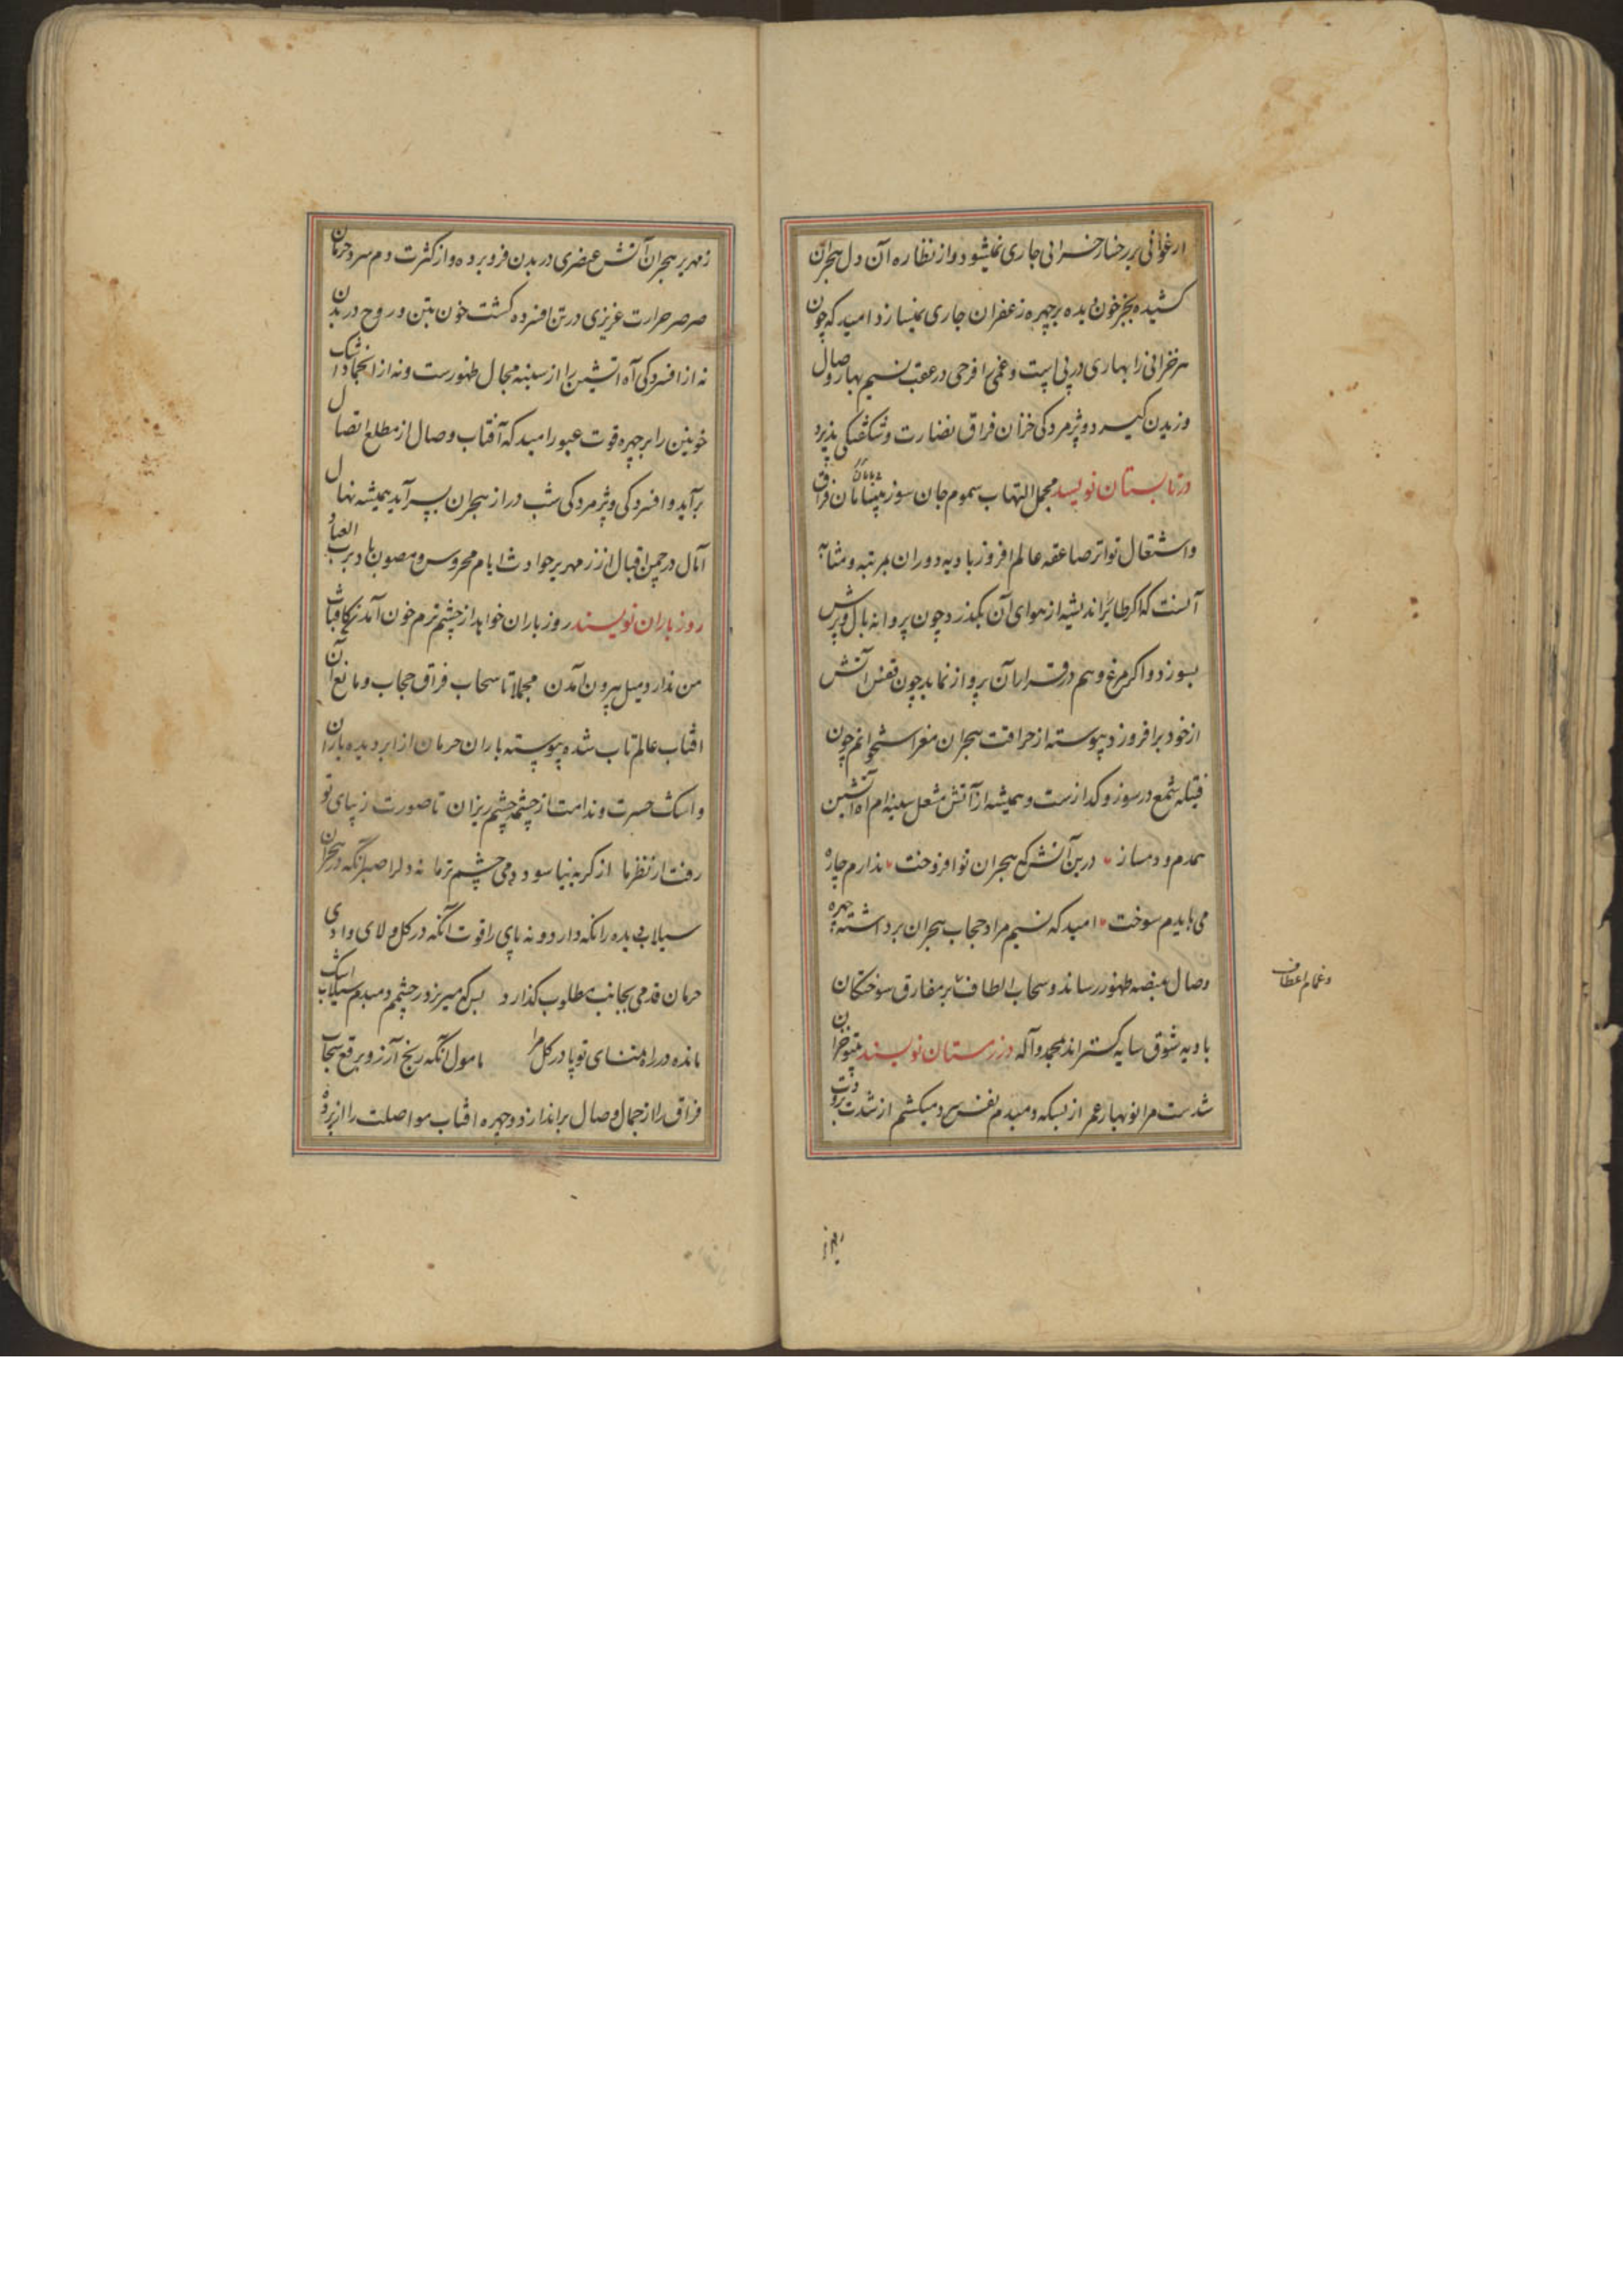 ارغوانی بر رخسار خزانی جاری نمیشود و از نظاره آن دل هجران
کشیده بجز خون دیده بر چهره زعفران جاری نمیسازد امید که چون
هر خزانی را بهاری در پی است و غمی را فرحی در عقب نسیم بهار وصال
وزیدن گیرد و پژمردگی خزان فراق بنضارت و شکفتگی پذیرد
در تابستان نویسد مجمل التهاب سموم جان سوز بیابان فراق
و اشتعال تواتر صاعقه عالم افروز بادیه دوران بمرتبه و مثابه
آنست که اگر طایر اندیشه از هوای آن بگذرد چون پروانه بال و پرش
بسوزد و اگر مرغ وهم در آن پرواز نماید چون ققنس آتش
از خود برافروزد پیوسته از حرافت هجران مغز استخوانم چون
فتیله شمع در سوز و گدازست و همیشه از آتش مشعل سینه ام آه آتشین
همدم و دمساز درین آتش که هجران تو افروخت ندارم چاره
می بایدم سوخت امید که نسیم مراد حجاب هجران برداشته چهره
وصال بمنصه ظهور رساند و سحاب الطاف بر مفارق سوختگان
و غمام اعطاف
بادیه شوق سایه گستراند بمحمد و آله در زمستان نویسند بیتو خزان
شدست مرا نوبهار عمر از بسکه دمبدم نفس سرد میکشم از شدت برودت
زمهریر
زمهریر هجران آتش عنصری در بدن فرو برده و از کثرت دم سرد حرمان
صرصر حرارت غریزی در تن افسرده گشت خون بتن و روح در بدن
نه از افسردگی آه آتشین را از سینه مجال ظهورست و نه از انجماد اشک
خونین را بر چهره قوت عبور امید که آفتاب وصال از مطلع اتصال
برآید و افسردگی و پژمردگی شب دراز هجران بسر آید همیشه نهال
آمال در چمن اقبال از زمهریر حوادث ایام محروس و مصون باد برب العباد
روز باران نویسند روز باران خواهد از چشم ترم خون آمدن کافتاب
من ندارد میل بیرون آمدن مجملا تا سحاب فراق حجاب و مانع آن
افتاب عالمتاب شده پیوسته باران حرمان از ابر دیده باران
و اشک حسرت و ندامت از چشمه چشم ریزان تا صورت زیبای تو
رفت از نظر ما از گریه نیاسود دمی چشم تر ما نه دل را صبر آنکه در هجران
سیلاب دیده را نگه دارد و نه پای را قوت آنکه در گل و لای وادی
حرمان قدمی بجانب مطلوب گذارد بس که میریزد ز چشمم دمبدم سیلاب اشک
مانده در راه تمنای تو پا در گل مرا مامول آنکه ریح آرزو برقع سحاب
فراق را از جمال وصال براندازد و چهره افتاب مواصلت را از پرده